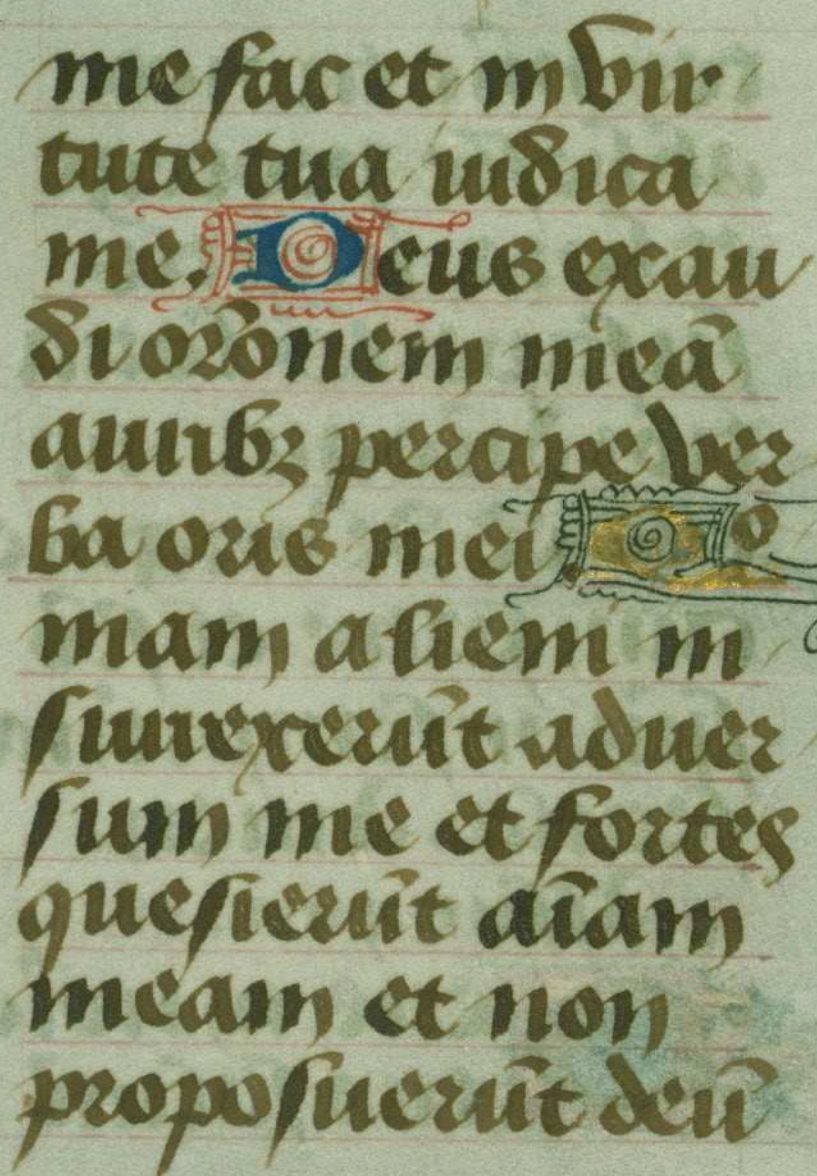 me fac et in vir
tute tua iudica
me. Deus exau
di orōnem meā
auribꝫ percipe ver
ba oris mei Qo
niam alieni in
surrexerūt aduer
sum me et fortes
quesierūt aīam
meam et non
proposuerūt deū